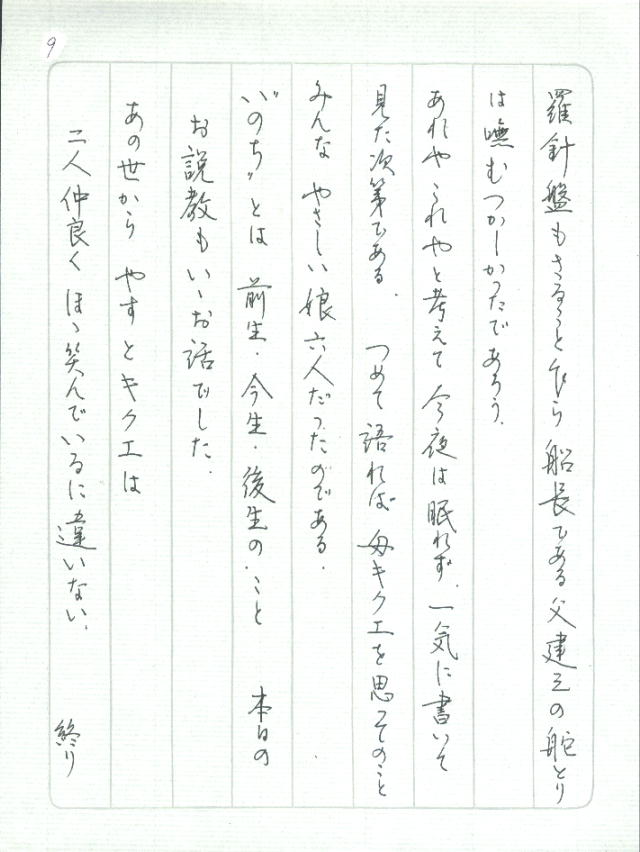 9
羅針盤もさることながら 船長である父建三の舵とり
は嘸むつかしかったであろう.
あれや これやと考えて 今夜は眠れず. 一気に書いて
見た次第である. つめて語れば 母キクエを思ってのこと
みんな やさしい娘六人だったのである.
"いのち" とは 前生・今生・後生の こと 本日の
お説教もいゝお話でした.
あの世から やすとキクエは
二人仲良く ほゝ笑んでいるに違いない.
終り